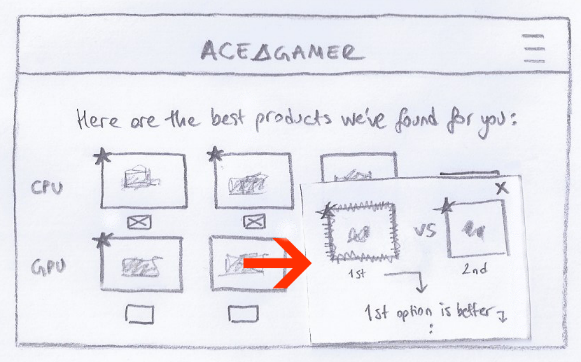 ACE∆GAMER
Here are the best products we've found for you:
CPU
X
VS
GPU
1st
2nd
1st option is better
: